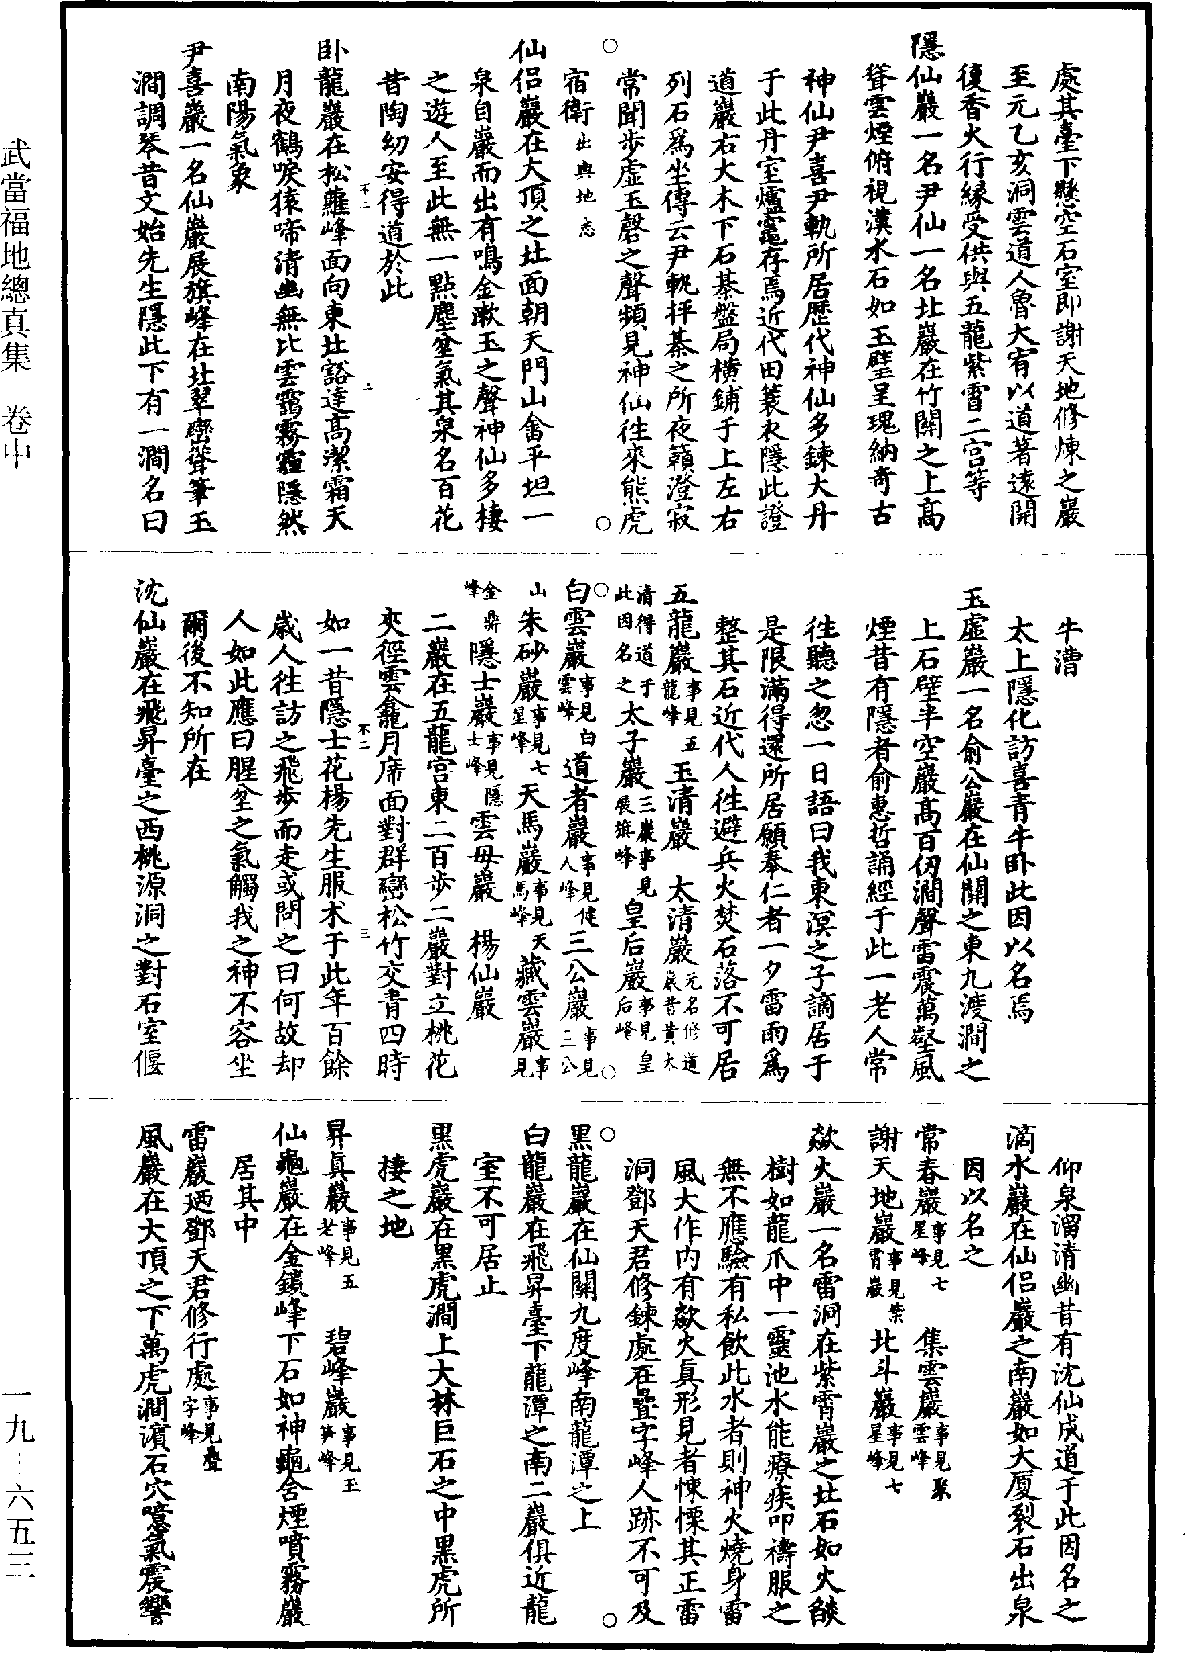 武當福地總真集　卷中
處其臺下懸空石室即謝天地修煉之巖
至元乙亥洞雲道人魯大宥以道著遠開
復香火行緣受供與五龍紫霄二宮等
隱仙巖一名尹仙一名北巖在竹關之上高
聳雲煙俯視漢水石如玉璧呈瑰納奇古
神仙尹喜尹軌所居歷代神仙多鍊大丹
于此丹室爐竈存焉近代田蓑衣隱此證
道巖右大木下石棊盤局橫鋪于上左右
列石為坐傳云尹軌抨棊之所夜籟澄寂
常聞步虛玉磬之聲頻見神仙往來熊虎
宿衛出輿地志
仙侶巖在大頂之北面朝天門山畬平坦一
泉自巖而出有鳴金漱玉之聲神仙多棲
之遊人至此無一點塵坌氣其泉名百花
昔陶幼安得道於此
臥龍巖在松蘿峰面向東北豁達高潔霜天
月夜鶴唳猿啼清幽無比雲靄霧霾隱然
南陽氣象
尹喜巖一名仙巖展旗峰在北翠巒聳筆玉
澗調琴昔文始先生隱此下有一澗名曰
牛漕
太上隱化訪喜青牛臥此因以名焉
玉虛巖一名俞公巖在仙關之東九渡澗之
上石壁半空巖高百仞澗聲雷震萬壑風
煙昔有隱者俞惠哲誦經于此一老人常
往聽之忽一日語曰我東溟之子謫居于
是限滿得還所居願奉仁者一夕雷雨為
整其石近代人往避兵火焚石落不可居
五龍巖事見五龍峰　玉清巖　太清巖元名修道巖昔黃太
清得道于此因名之太子巖三巖事見展旗峰　皇后巖事見皇后峰
白雲巖事見白雲峰　道者巖事見健人峰　三公巖事見三公
山　朱砂巖事見七星峰　天馬巖事見天馬峰　藏雲巖事見
金鼎峰　隱士巖事見隱士峰　雲母巖　楊仙巖
二巖在五龍宮東二百步二巖對立桃花
夾徑雲龕月席面對群巒松竹交青四時
如一昔隱士花楊先生服术于此年百餘
歲人往訪之飛步而走或問之曰何故却
人如此應曰腥坌之氣觸我之神不容坐
爾後不知所在
沈仙巖在飛昇臺之西桃源洞之對石室偃
仰泉溜清幽昔有沈仙成道于此因名之
滴水巖在仙侶巖之南巖如大厦裂石出泉
因以名之
常春巖事見七星峰　集雲巖事見聚雲峰
謝天地巖事見紫霄巖　北斗巖事見七星峰
歘火巖一名雷洞在紫霄巖之北石如火燄
樹如龍爪中一靈池水能療疾叩禱服之
無不應驗有私飲此水者則神火燒身雷
風大作内有歘火真形見者悚慄其正雷
洞鄧天君修鍊處在疊字峰人跡不可及
黑龍巖在仙關九度峰南龍潭之上
白龍巖在飛昇臺下龍潭之南二巖俱近龍
室不可居止
黑虎巖在黑虎澗上大林巨石之中黑虎所
棲之地
昇真巖事見五老峰　碧峰巖事見玉笋峰
仙龜巖在金鎖峰下石如神龜含煙噴霧巖
居其中
雷巖廼鄧天君修行處事見疊字峰
風巖在大頂之下萬虎澗濵石穴噫氣震響
一九－六五三